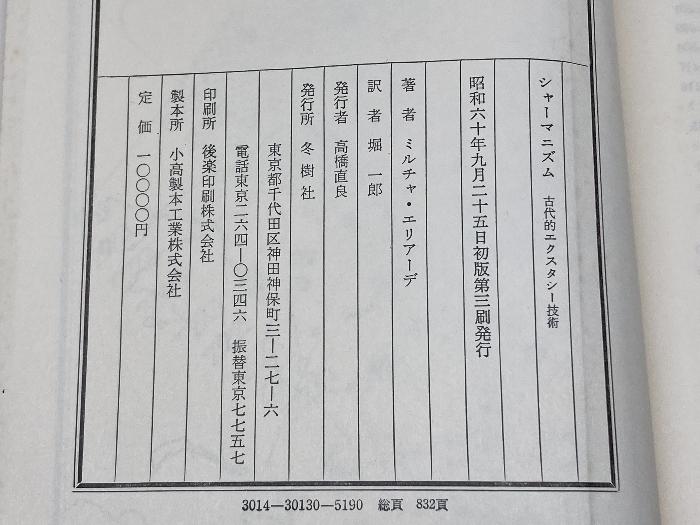 シャーマニズム 古代的エクスタシー技術
昭和六十年九月二十五日初版第三刷発行
著者 ミルチャ・エリアーデ
訳者 堀 一郎
発行者 高橋直良
発行所 冬樹社
東京都千代田区神田神保町三―二七―六
電話東京二六四―〇三四六 振替東京七七五七
印刷所 後楽印刷株式会社
製本所 小高製本工業株式会社
定価 一〇〇〇〇円
3014―30130―5190 総頁 832頁